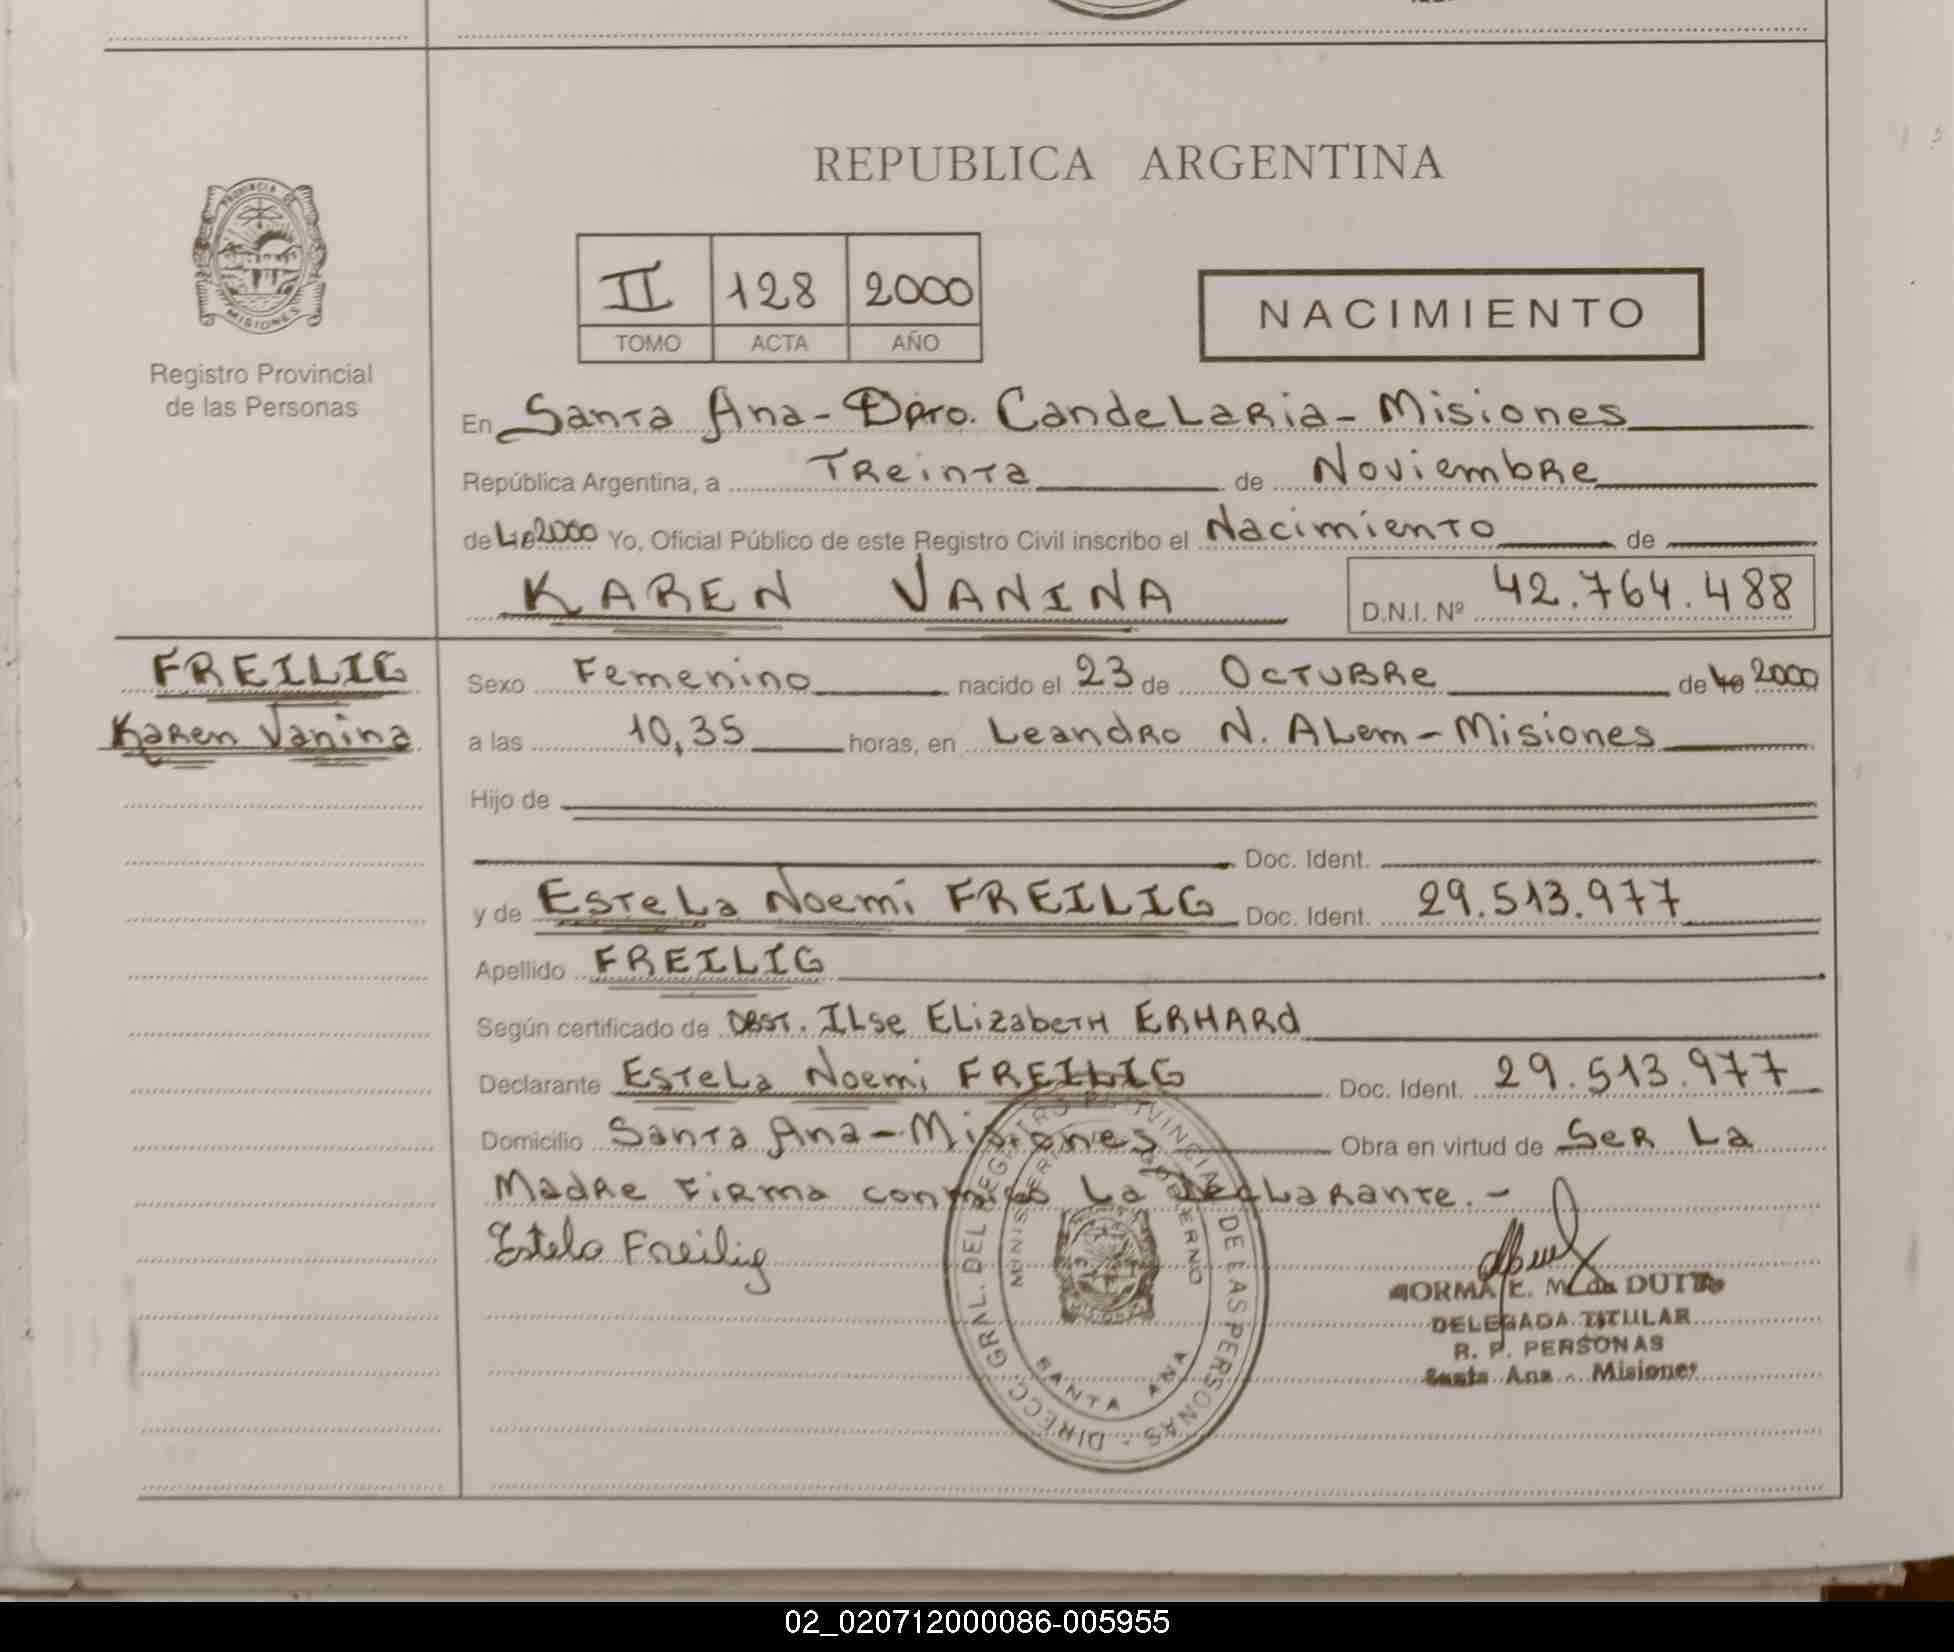 REPUBLICA ARGENTINA
PROVINCIA DE
MISIONES
Registro Provincial
de las Personas
II 128 2000
TOMO ACTA AÑO
NACIMIENTO
En Santa Ana - Dpto. Candelaria - Misiones
República Argentina, a Treinta de Noviembre
de 2000 Yo, Oficial Público de este Registro Civil inscribo el Nacimiento de
KAREN VANINA D.N.I. Nº 42.764.488
FREILIG
Karen Vanina
Sexo Femenino nacido el 23 de Octubre de 2000
a las 10,35 horas, en Leandro N. Alem - Misiones
Hijo de
Doc. Ident.
y de Estela Noemi FREILIG Doc. Ident. 29.513.977
Apellido FREILIG
Según certificado de Obst. Ilse Elizabeth ERHARd
Declarante Estela Noemi FREILIG Doc. Ident. 29.513.977
Domicilio Santa Ana - Misiones Obra en virtud de Ser La
Madre Firma conmigo La Declarante. -
Estela Freilig
DIRECC. GRAL. DEL REGISTRO PROVINCIAL DE LAS PERSONAS -
MINISTERIO GOBIERNO
SANTA ANA
NORMA E. M. de DUTTO
DELEGADA TITULAR
R. P. PERSONAS
Santa Ana - Misiones
02_020712000086-005955